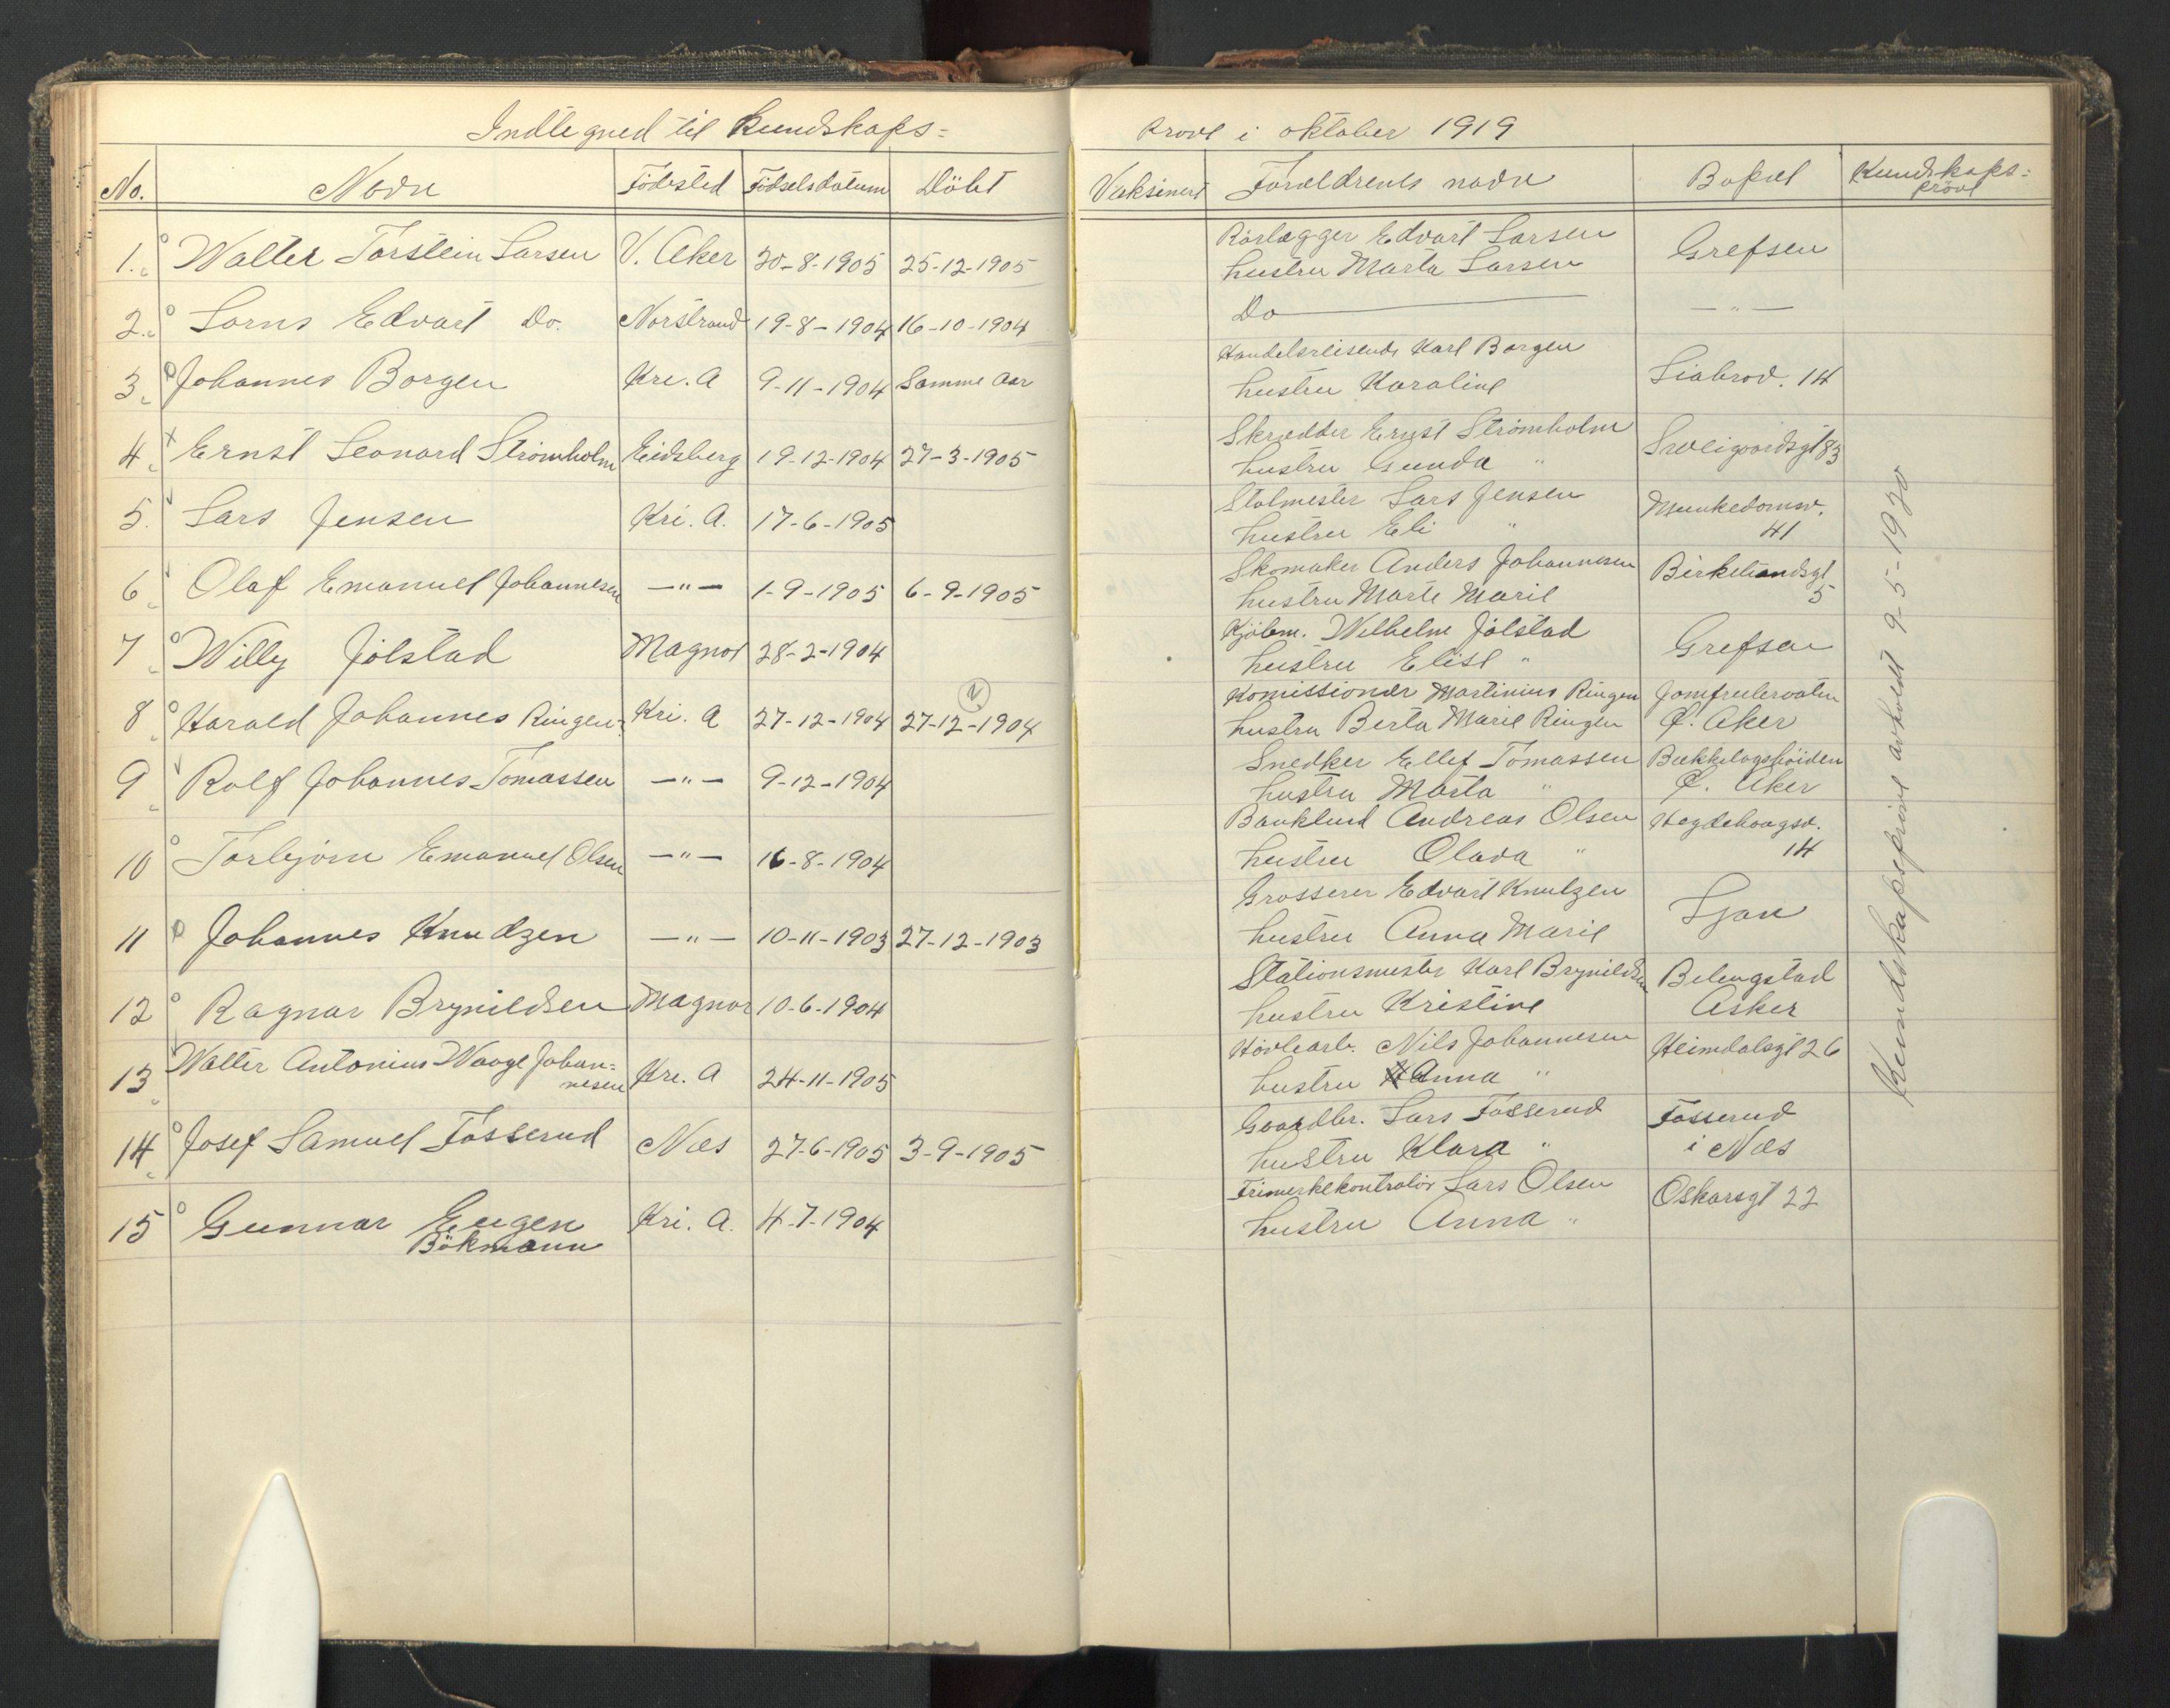 Indtegned til Kundskaps=
prøve i oktober 1919
No. Navn Födested Födselsdatum Döbt Vaksinert Foreldrenes navn Bopæl Kundskaps=
prøve
1. Walter Torstein Larsen V. Aker 20-8-1905 25-12-1905 Rörlægger Edvart Larsen Grefsen
hustru Marta Larsen
2. Edvart Do. Norstrand 19-8-1904 16-10-1904 Do — " —
3. Johannes Borgen Kri. A 9-11-1904 Samme Aar Handelsreisende Karl Borgen
hustru Karoline Liabrov. 14
4. Ernst Leonard Strömholm Eidsberg 19-12-1904 27-3-1905 Skrædder Ernst Strömholm
hustru Gunda " Sweigaardsgt 83
5. Lars Jensen Kri. A. 17-6-1905 Stalmester Lars Jensen Munkedamsv.
hustru Eli " 41
6. Olaf Emanuel Johannesen — " — 1-9-1905 6-9-1905 Skomaker Anders Johannesen Birkelundsgt
hustru Marte Marie 5
7 Willy Jölstad Magnor 28-2-1904 Kjöbm. Wilhelm Jölstad Grefsen
hustru Elise "
8 Harald Johannes Ringen Kri. A 27-12-1904 27-12-1904 Komissionær Martinius Ringen Jomfrulervatn
hustru Berta Marie Ringen Ø. Aker
9 Rolf Johannes Tomassen — " — 9-12-1904 Snedker Ellef Tomassen Bækkelagshöiden
hustru Marta " Ø. Aker
10 Torbjörn Emanuel Olsen — " — 16-8-1904 Bankbud Andreas Olsen Hegdehaugsv.
hustru Olava " 14
11 Johannes Knudzen — " — 10-11-1903 27-12-1903 Grosserer Edvart Knutzen Ljan
hustru Anna Marie
12 Ragnar Brynildsen Magnor 10-6-1904 Stationsmester Karl Brynildsen Belengstad
hustru Kristine Asker
13 Walter Antonius Waage Johan=
nesen Kri. A 24-11-1905 Hövlearb. Nils Johannesen Heimdalsgt 26
hustru Anna "
14 Josef Samuel Fosserud Næs 27-6-1905 3-9-1905 Gaardbr. Lars Fosserud Fosserud
hustru Klara " i Næs
15 Gunnar Eugen
Bökmann Kri. A. 4-7-1904 Frimerkekontrolör Lars Olsen Oskarsgt 22
hustru Anna "
Kundskapsprøve avholdt 9-5-1920